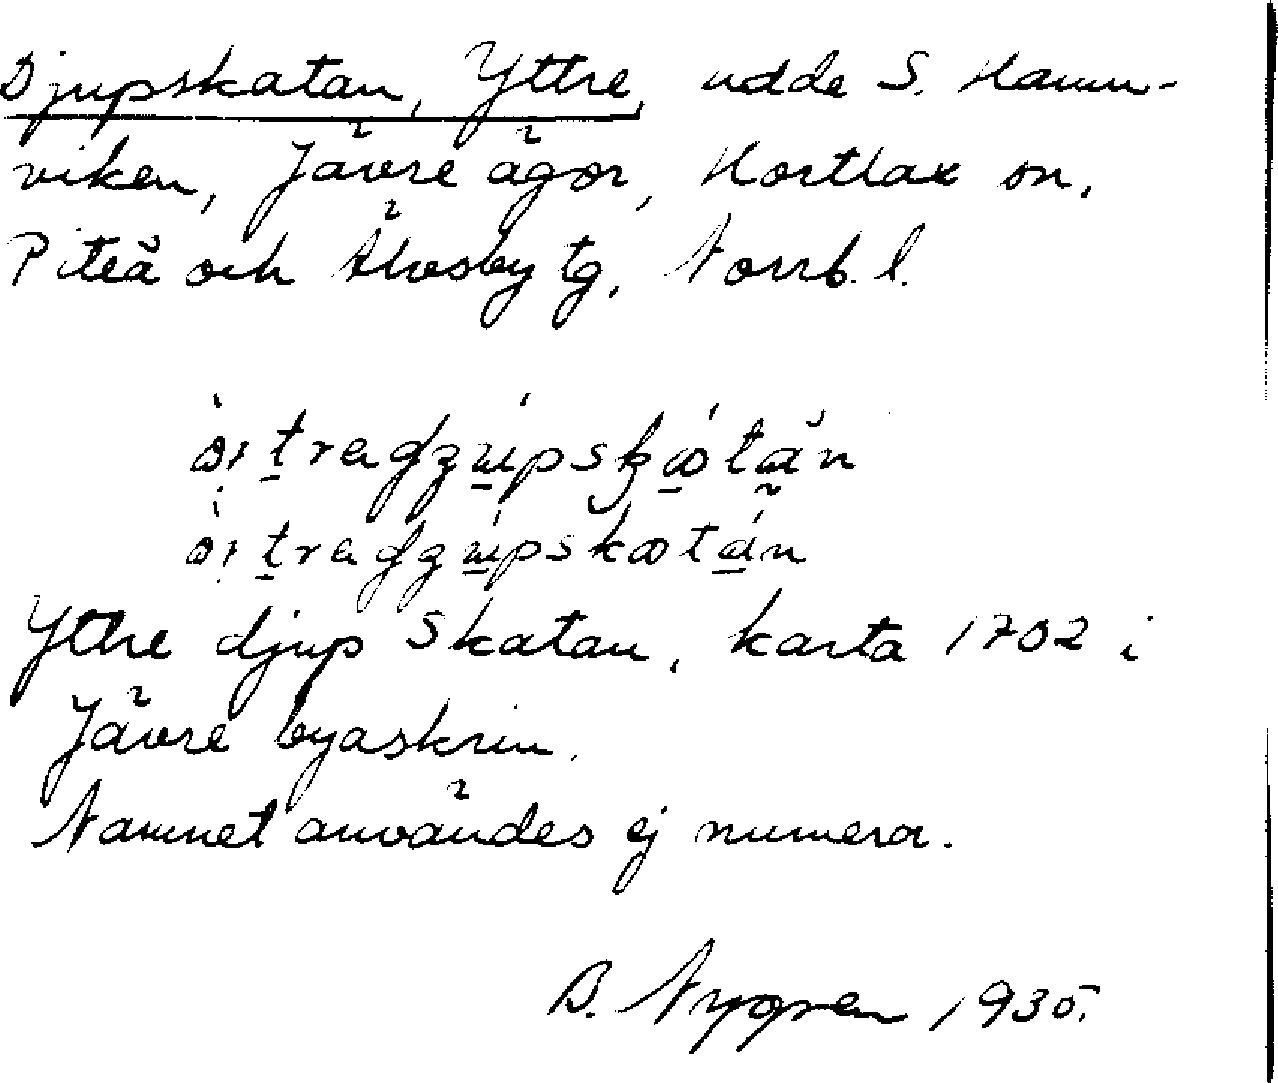 Djupskatan, Yttre, udde S. Hamn-
viken, Jävre ägor, Hortlax sn,
Piteå och Älvsby tg, Norrb. l.
Yttre djup Skatan, karta 1702 i
Jävre byaskrin.
Namnet användes ej numera.
B. Nygren 1935.